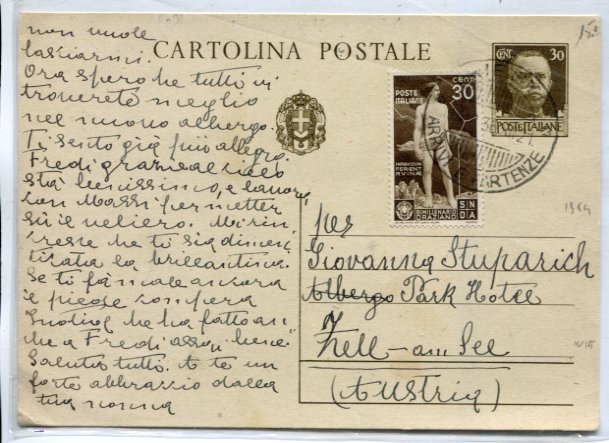 non vuole
lasciarci.
Ora spero che tutti vi
troverete meglio
nel nuovo albergo.
Ti sento già più allegro.
Fredi grazie al cielo
sta benissimo, e lavora
con Massi per metter
su il veliero. Mi rin-
cresce che ti sia dimen-
ticata la brillantina.
Se ti fa male ancora
il piede compera
che ha fatto an-
che a Fredi assai bene.
Saluta tutti. A te un
forte abbraccio dalla
tua nonna
CARTOLINA POSTALE
CENT. 30
POSTE ITALIANE
POSTE ITALIANE
CENT. 30
IMPAVIDUM
FERIENT
RVINAE
BIMILLENARIO
ORAZIANO
S N
D A
ARRIVI E PARTENZE
1964
per
Giovanna Stuparich
Albergo Park Hotel
Zell-am See
(Austria)